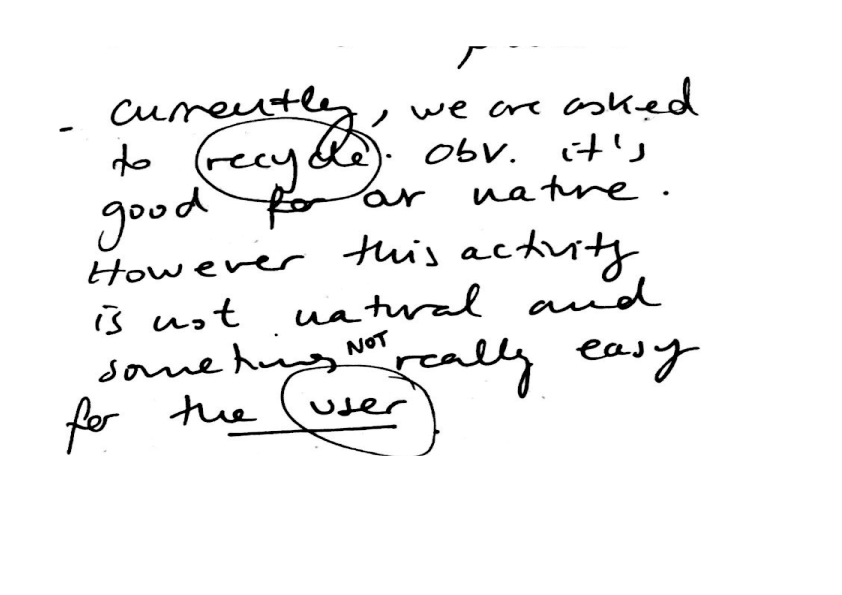 - currently, we are asked
to recycle. Obv. it's
good for our nature.
However this activity
is not natural and
something NOT really easy
for the user